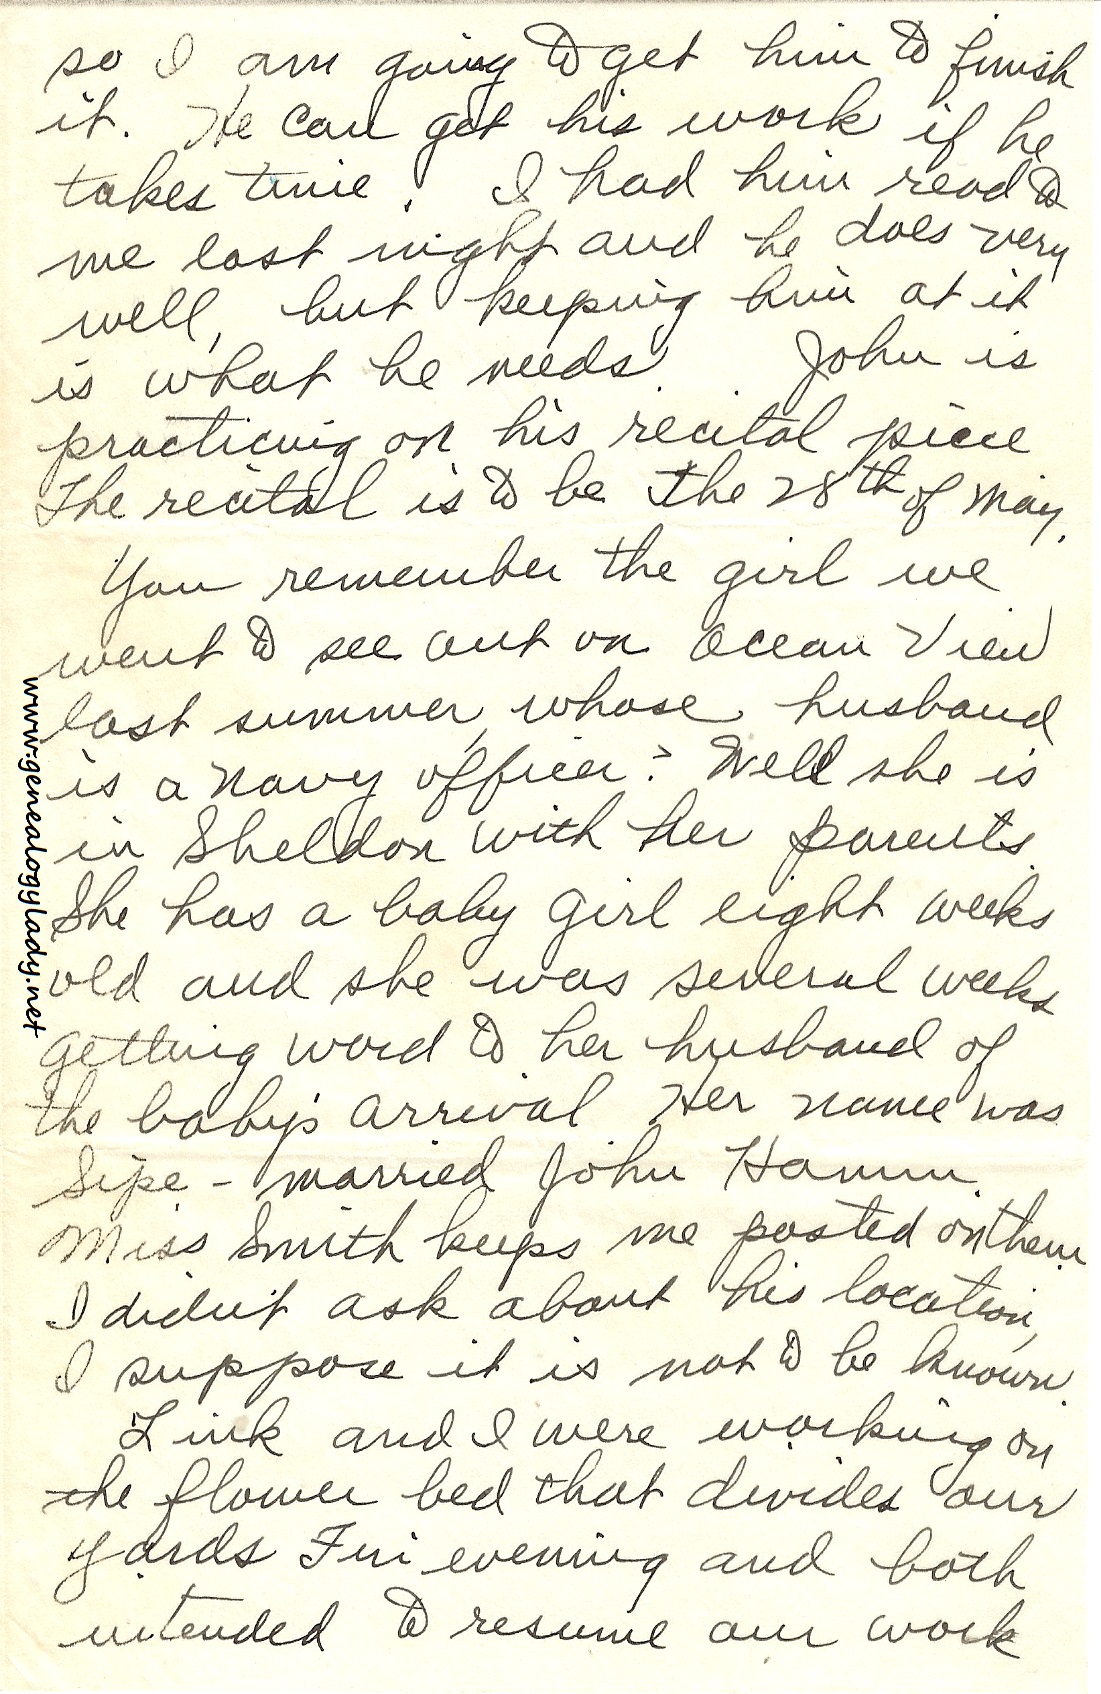 so I am going to get him to finish
it. He can get his work if he
takes time. I had him read to
me last night and he does very
well, but keeping him at it
is what he needs. John is
practicing on his recital piece
The recital is to be the 28th of May.
You remember the girl we
went to see out on Ocean View
last summer, whose husband
is a Navy officer? Well she is
in Sheldon with her parents.
She has a baby girl eight weeks
old and she was several weeks
getting word to her husband of
the baby's arrival Her name was
Sipe - married John Hamm.
Miss Smith keeps me posted on them
I didn't ask about his location,
I suppose it is not to be known.
Link and I were working on
the flower bed that divides our
yards Fri evening and both
intended to resume our work
www.genealogylady.net